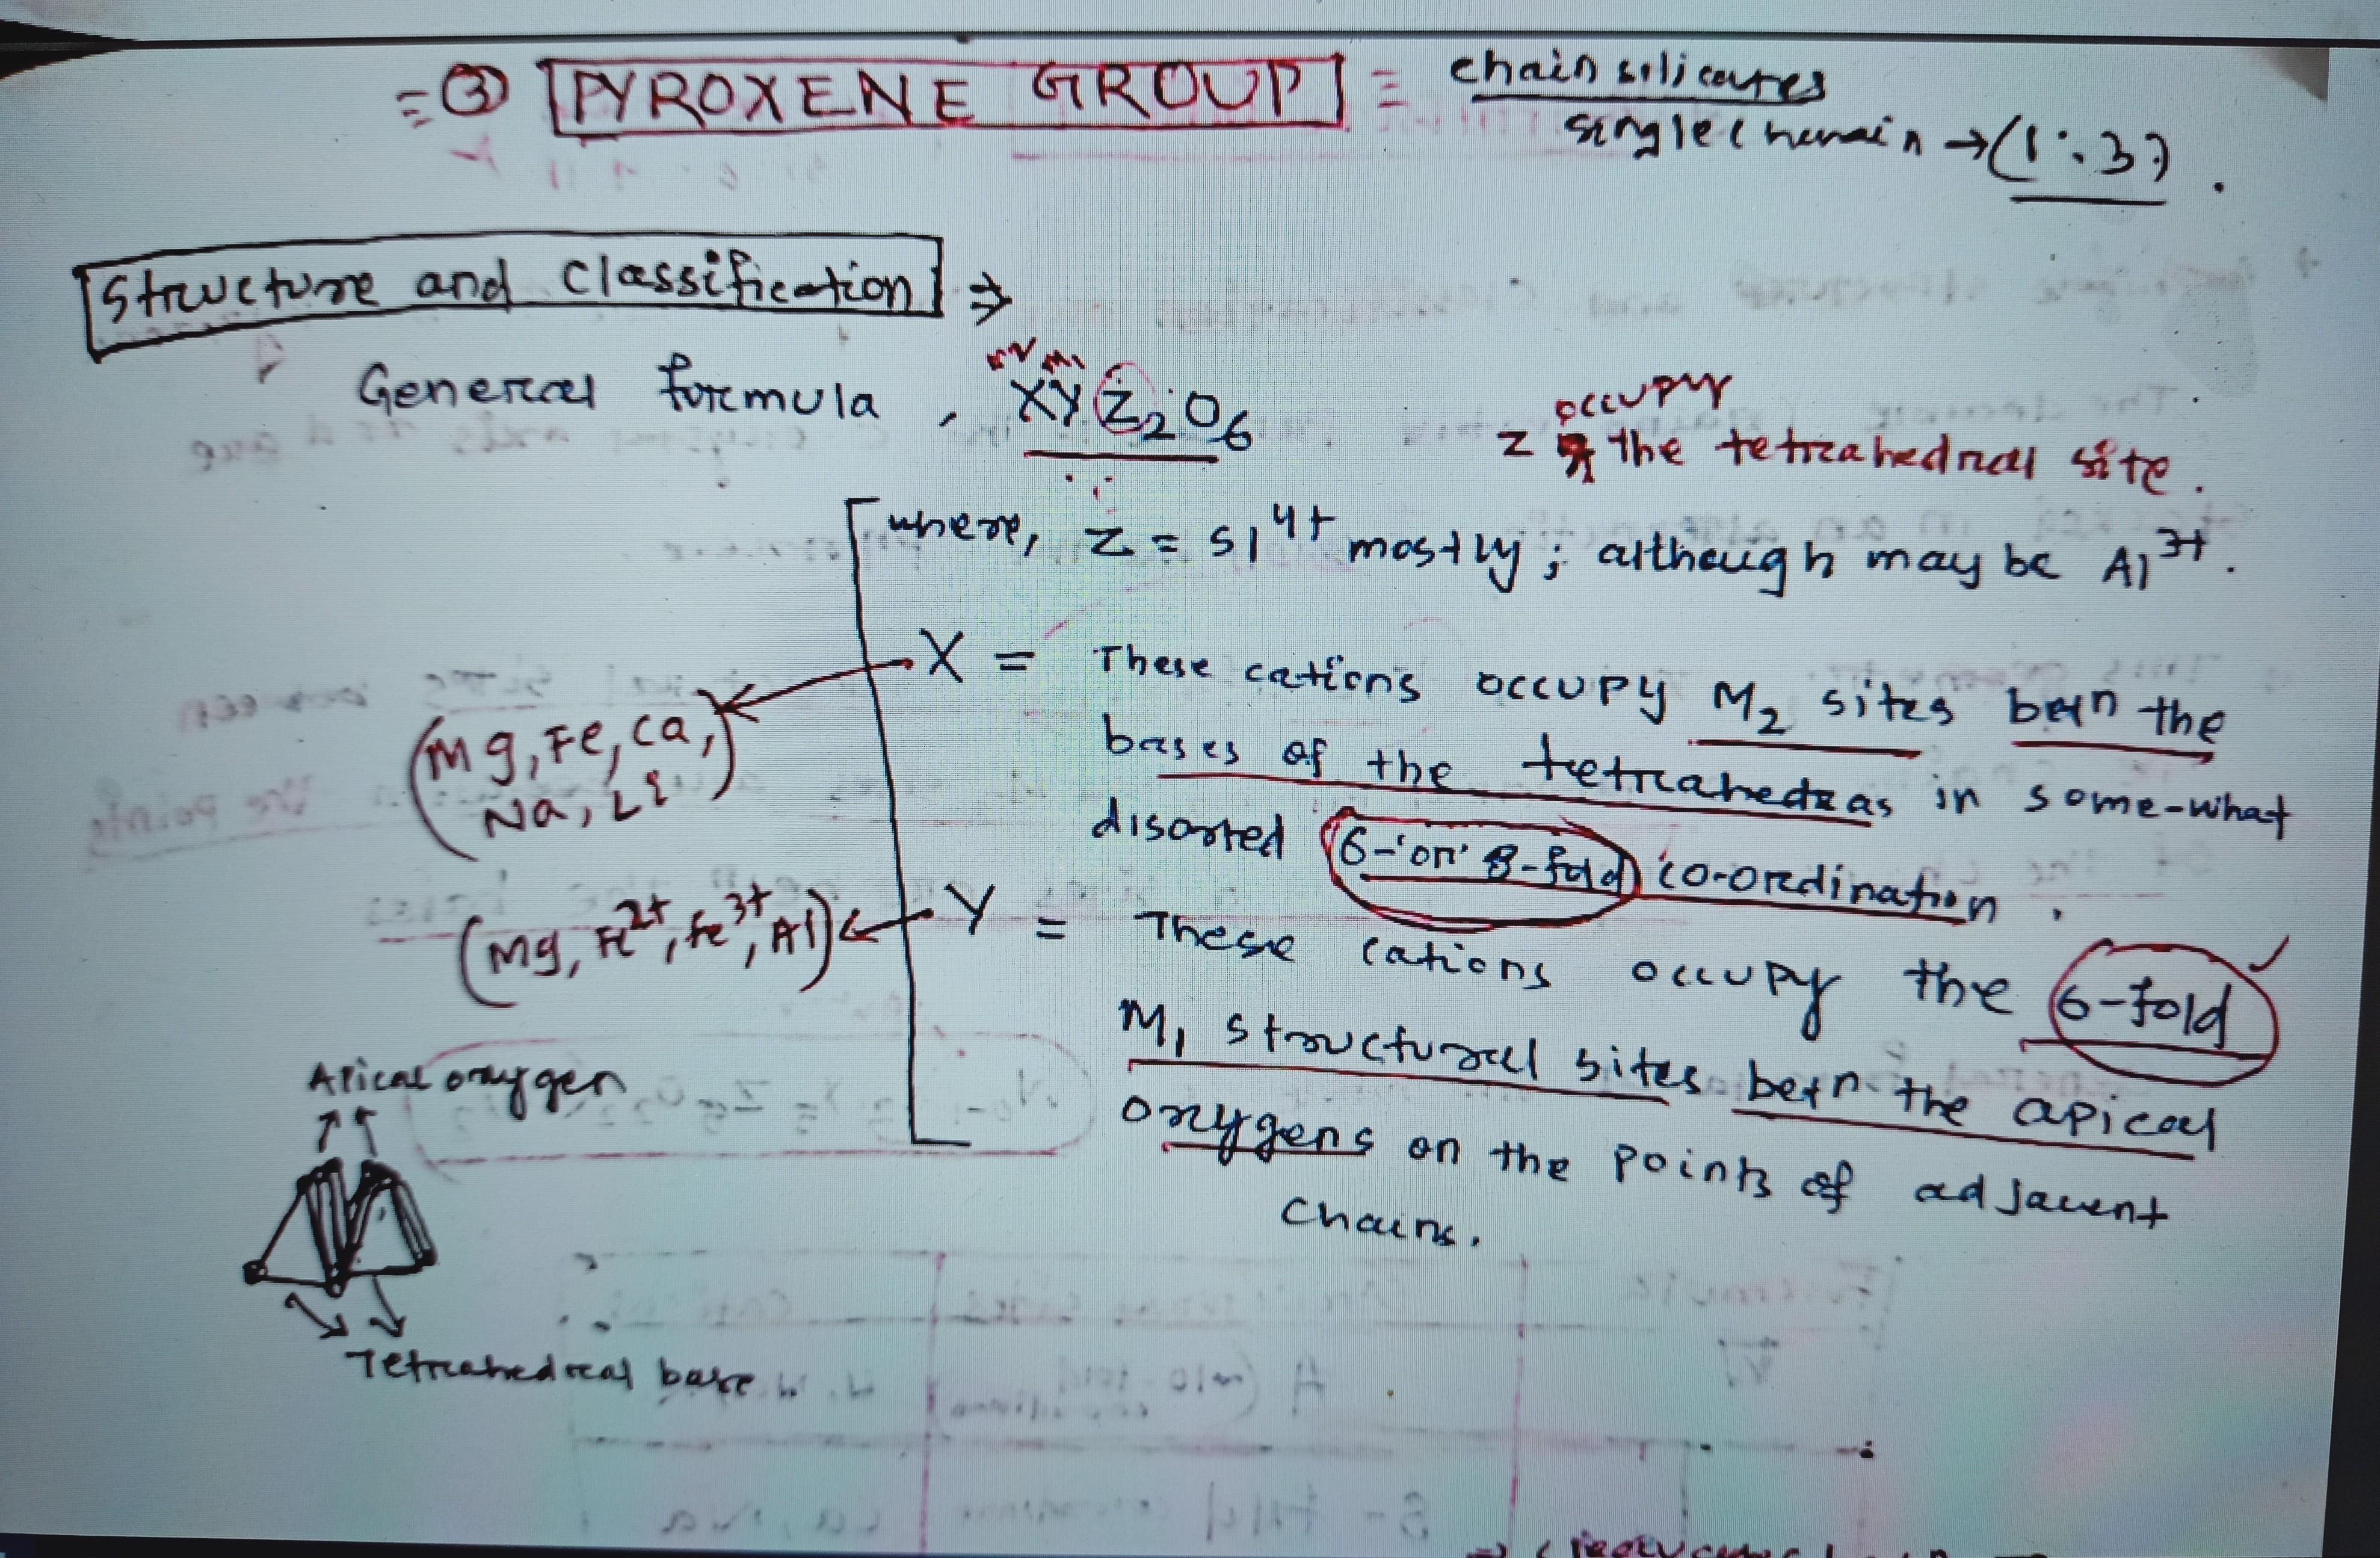 = ③ PYROXENE GROUP = chain silicates
single chain → (1:3).
Structure and Classification ⇒
M2 M1
General formula, XYZ₂O₆
occupy
Z the tetrahedral site.
where, Z = Si⁴⁺ mostly; although may be Al³⁺.
X = These cations occupy M₂ sites betn the
bases of the tetrahedras in some-what
disorted 6-'or' 8-fold co-ordination.
(Mg, Fe, Ca,
Na, Li)
Y = These cations occupy the 6-fold
M₁ structural sites betn the apical
oxygens on the points of adjacent
chains.
(Mg, Fe²⁺, Fe³⁺, Al)
Apical oxygen
Tetrahedral base